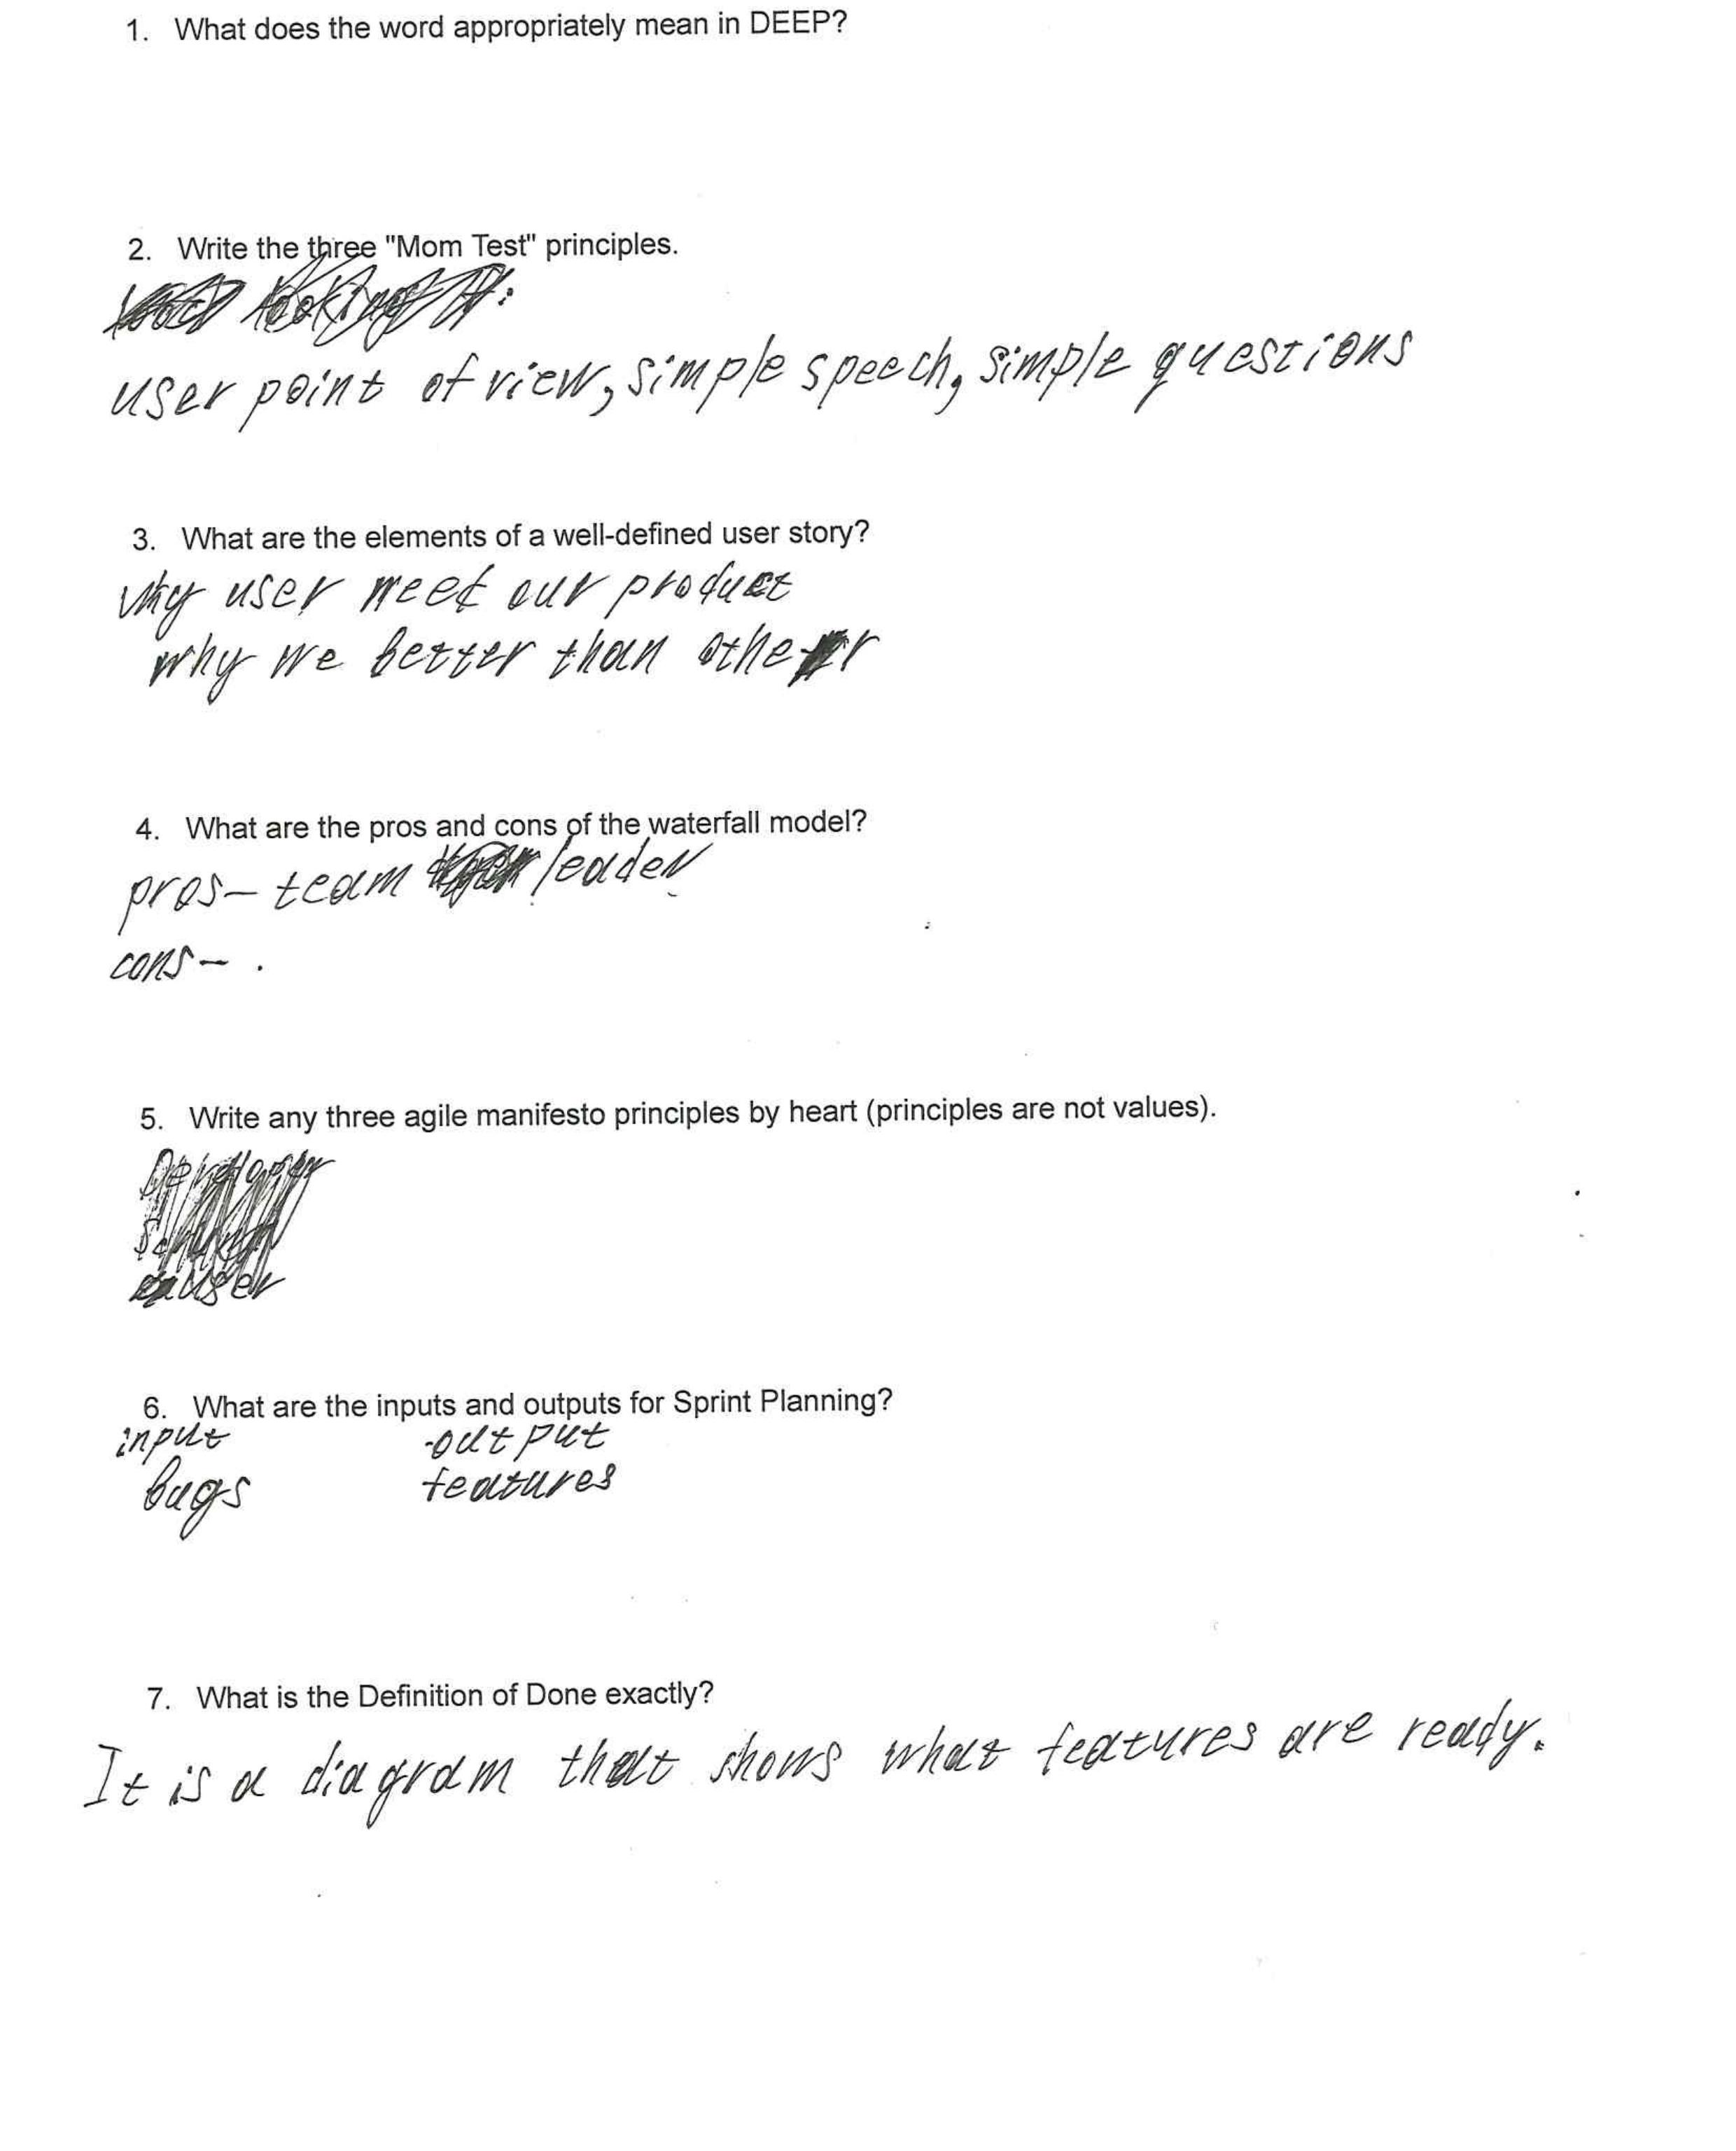 1. What does the word appropriately mean in DEEP?
2. Write the three "Mom Test" principles.
user point of view, simple speech, simple questions
3. What are the elements of a well-defined user story?
why user meet our product
why we better than other
4. What are the pros and cons of the waterfall model?
pros- team leader
cons- .
5. Write any three agile manifesto principles by heart (principles are not values).
6. What are the inputs and outputs for Sprint Planning?
input -output
bugs features
7. What is the Definition of Done exactly?
It is a diagram that shows what features are ready.